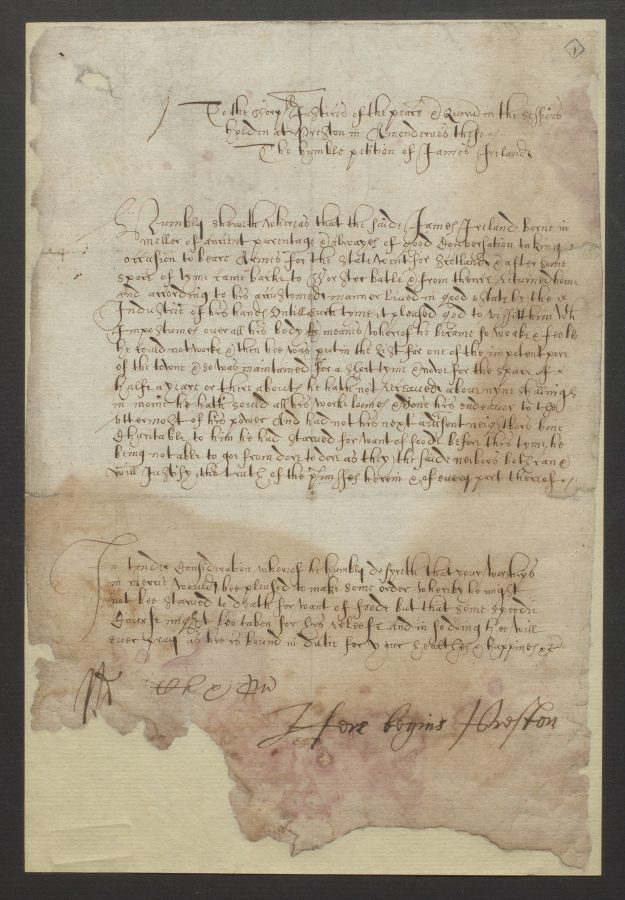 1
To the Worp Justices of the peace & Quorū in the sessions
holden at Preston in Amondernes these
The humble petition of James Ireland
Humbly sheweth whereas that the saide James Ireland Borne in
Meller of ancient parentage & Alwayes of good Conversation taking
occasion to beare Armes for the State went for Scotland & after some
space of tyme came backe to Worster batle & from thence returned home
And according to his accustomed manner lived in good estate by the
Industrie of his hands Untill such tyme it pleased god to vissitt him wth
Impostumes over all his body by meanes wherof he became so weake & feeble
he could not worke & then hee was put in the List for one of the impotent poore
of the towne & so was maintained for a short tyme & nowe for the space of
halfe a yeare or there abouts he hath not receaved above nyne shillings
in monie he hath sould all his worke loomes & done his endevor to the
uttermost of his power And had not his next neighbors bine
Charitable to him he had starved for want of foode before this tyme he
being not able to goe from dore to dore as they the saide neibors both can &
will Justify the truth of the p'misses herein & of every part therof
In tender Consideration wherof he humbly desyreth that your worships
in mercie would bee pleased to make some order wherby he might
not bee starved to death for want of foode but that some speedie
Course might bee taken for his releefe And in so doing hee will
ever pray as hee is bound in dutie for your healthes & happines &c
Here begins Preston